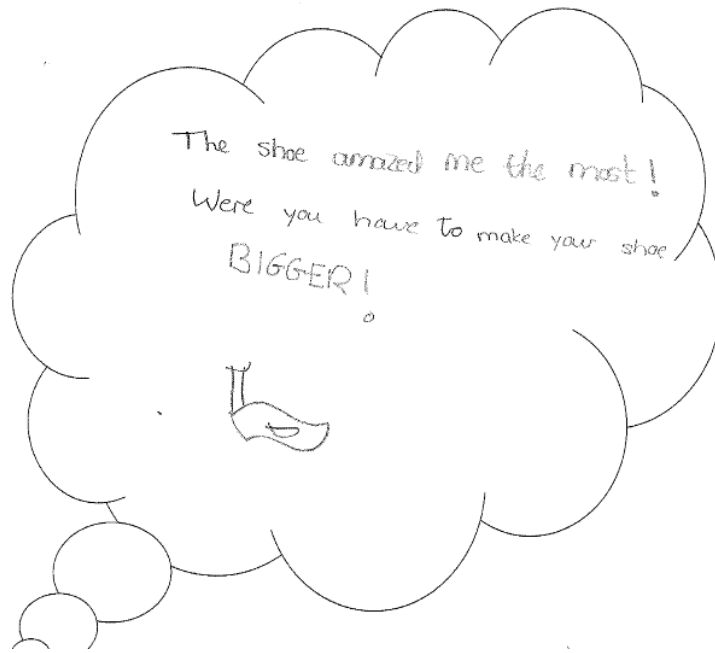 The shoe amazed me the most!
Were you have to make your shoe
BIGGER!